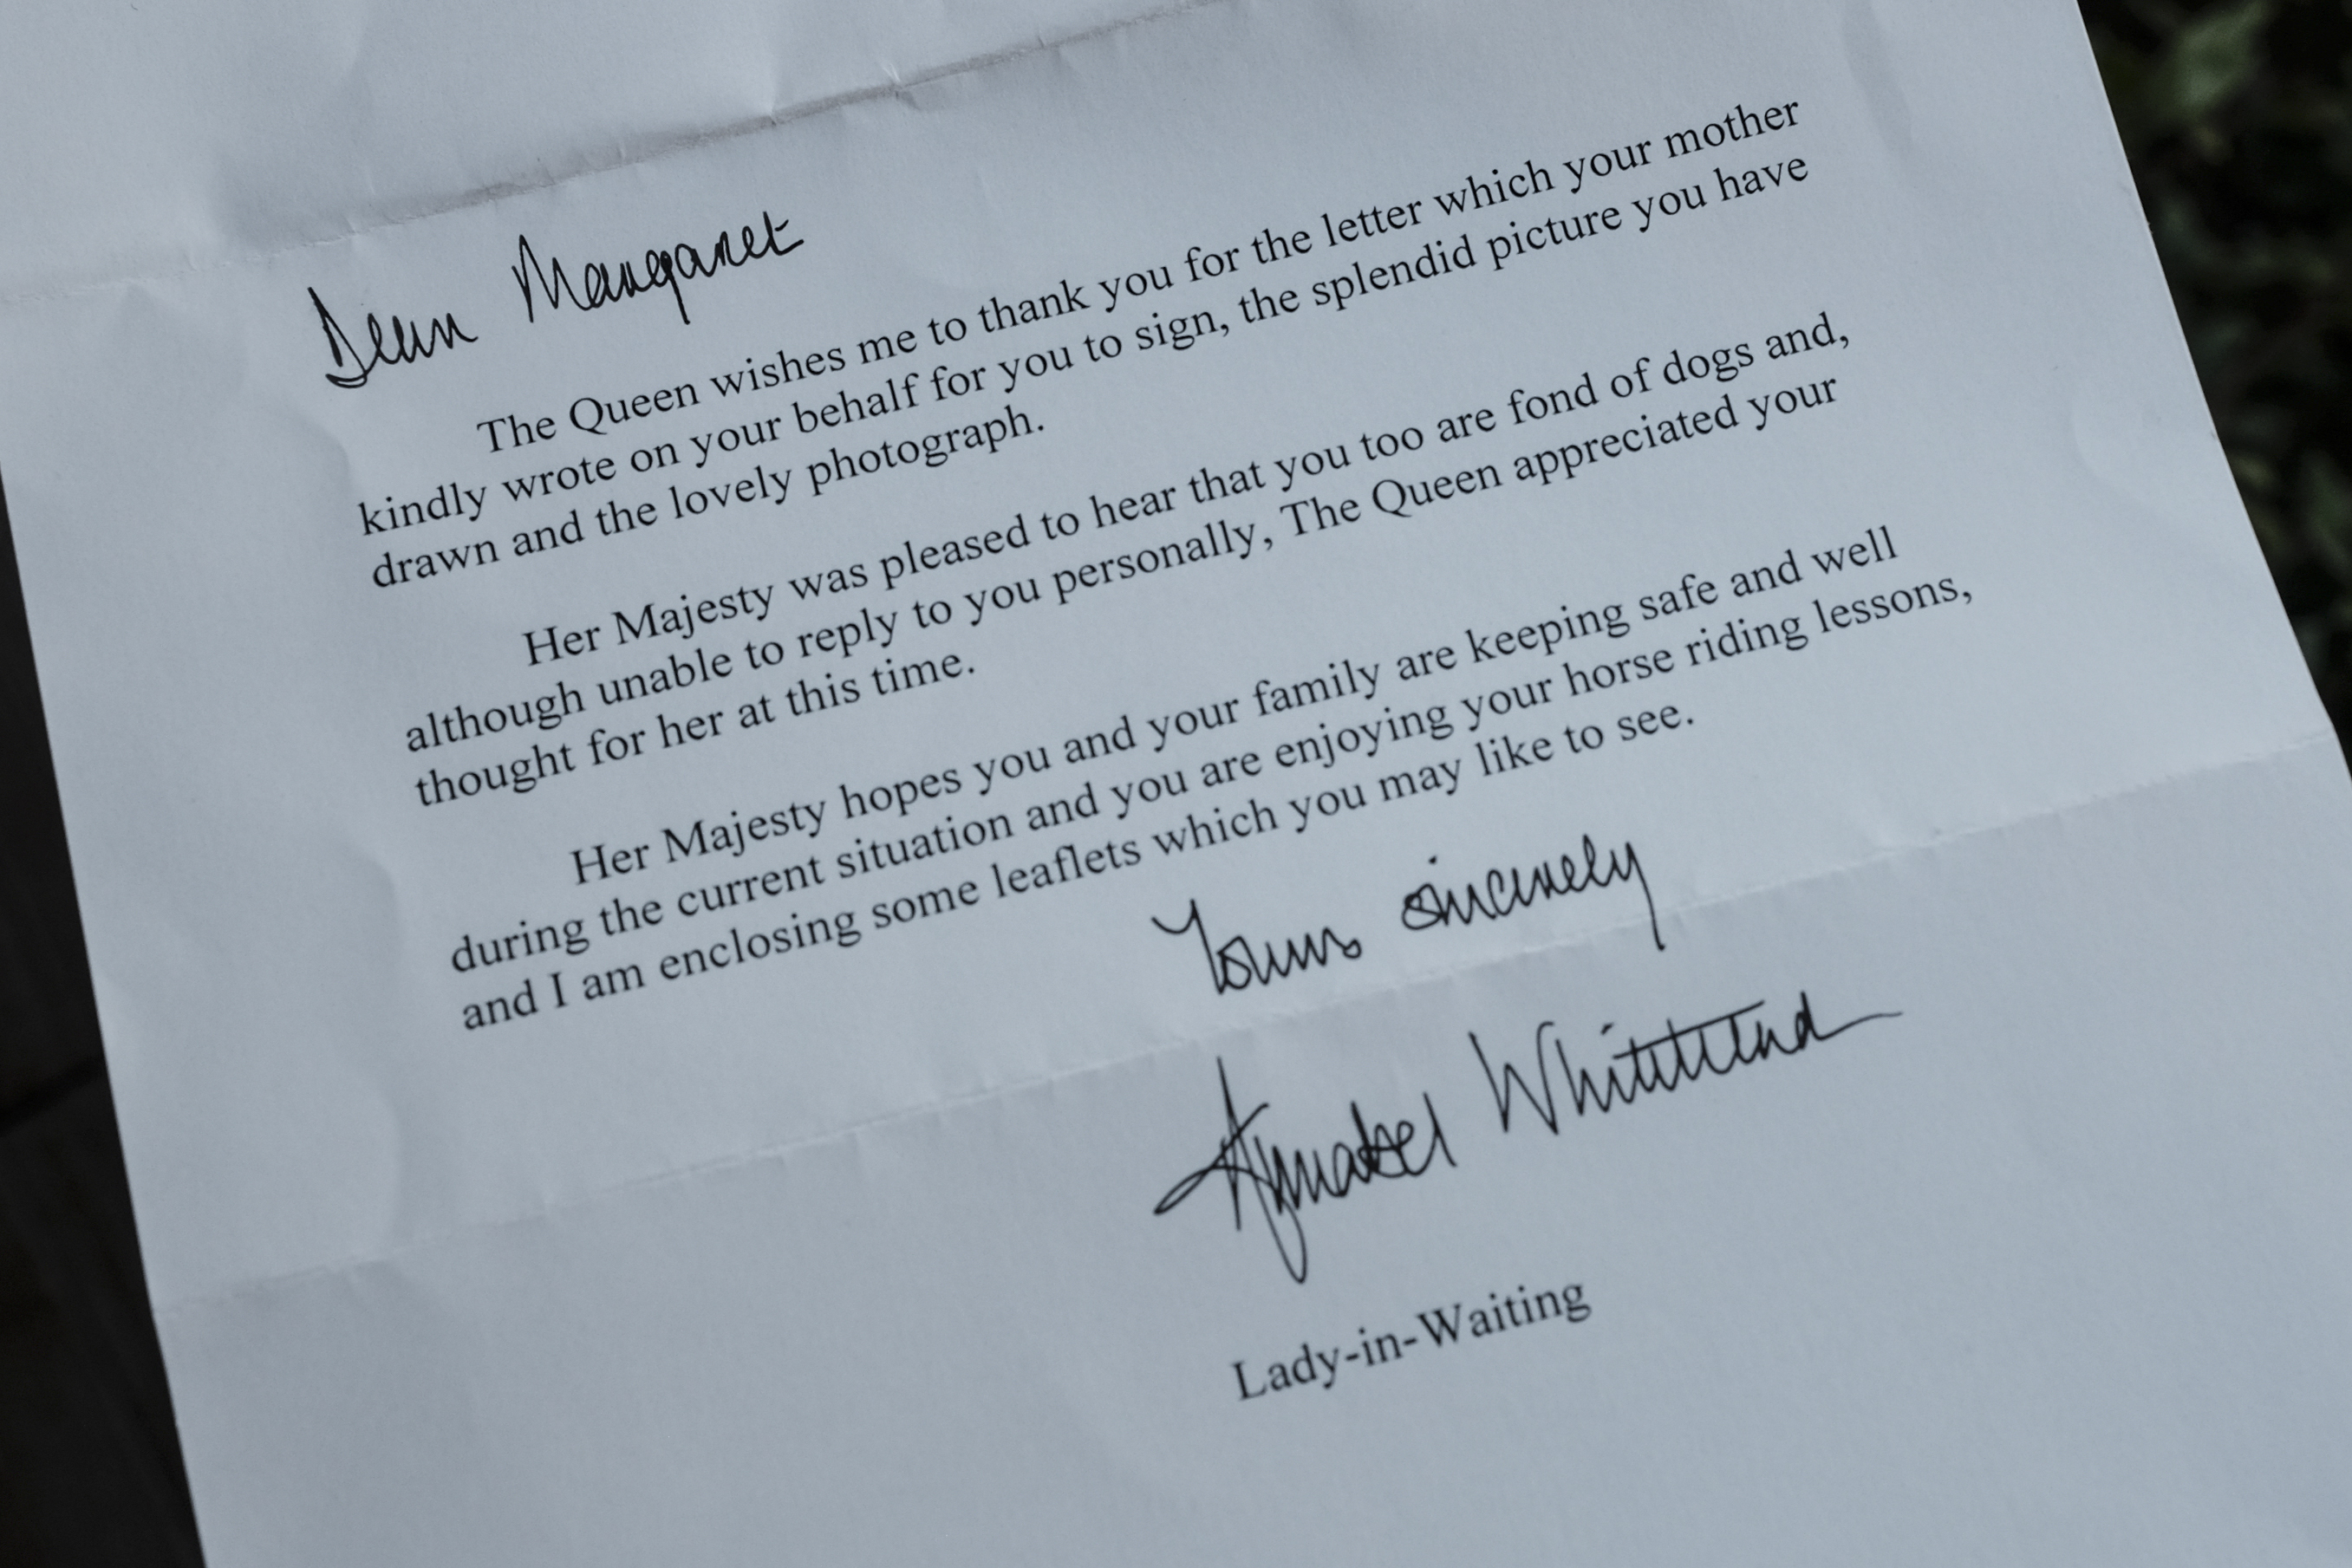 Dear Margaret
The Queen wishes me to thank you for the letter which your mother
kindly wrote on your behalf for you to sign, the splendid picture you have
drawn and the lovely photograph.
Her Majesty was pleased to hear that you too are fond of dogs and,
although unable to reply to you personally, The Queen appreciated your
thought for her at this time.
Her Majesty hopes you and your family are keeping safe and well
during the current situation and you are enjoying your horse riding lessons,
and I am enclosing some leaflets which you may like to see.
Yours sincerely
Annabel Whitehead
Lady-in-Waiting